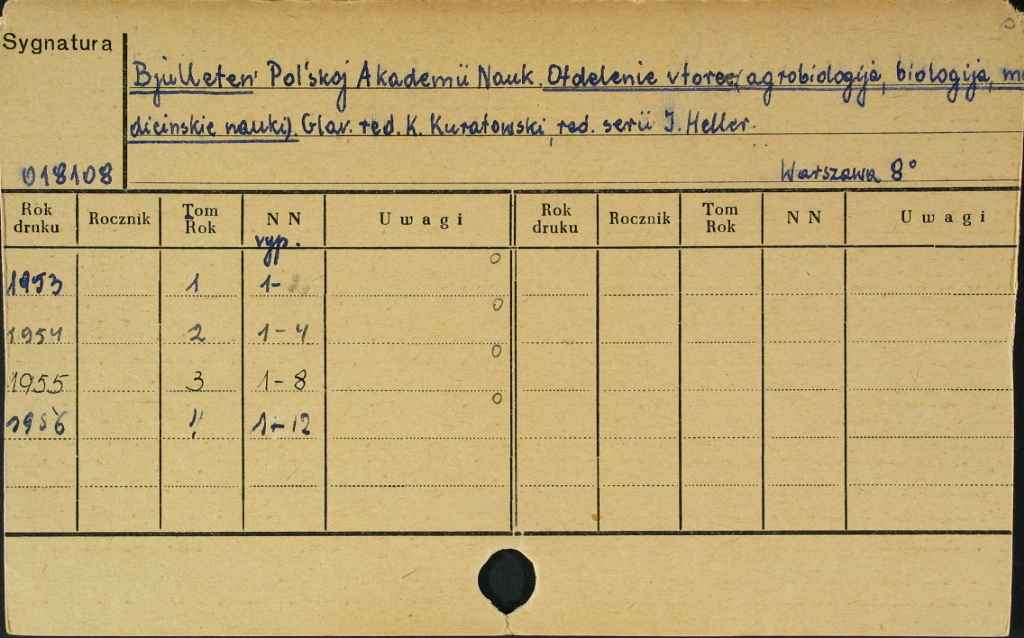 Sygnatura
Bjulleten' Pol'skoj Akademii Nauk. Otdelenie vtoroe (agrobiologija, biologija, me
dicinskie nauki). Glav. red. K. Kuratowski, red. serii J. Heller.
018108
Warszawa 8°
Rok druku Rocznik Tom Rok N N Uwagi Rok druku Rocznik Tom Rok N N Uwagi
vyp.
1953 1 1-
1954 2 1-4
1955 3 1-8
1956 1-12